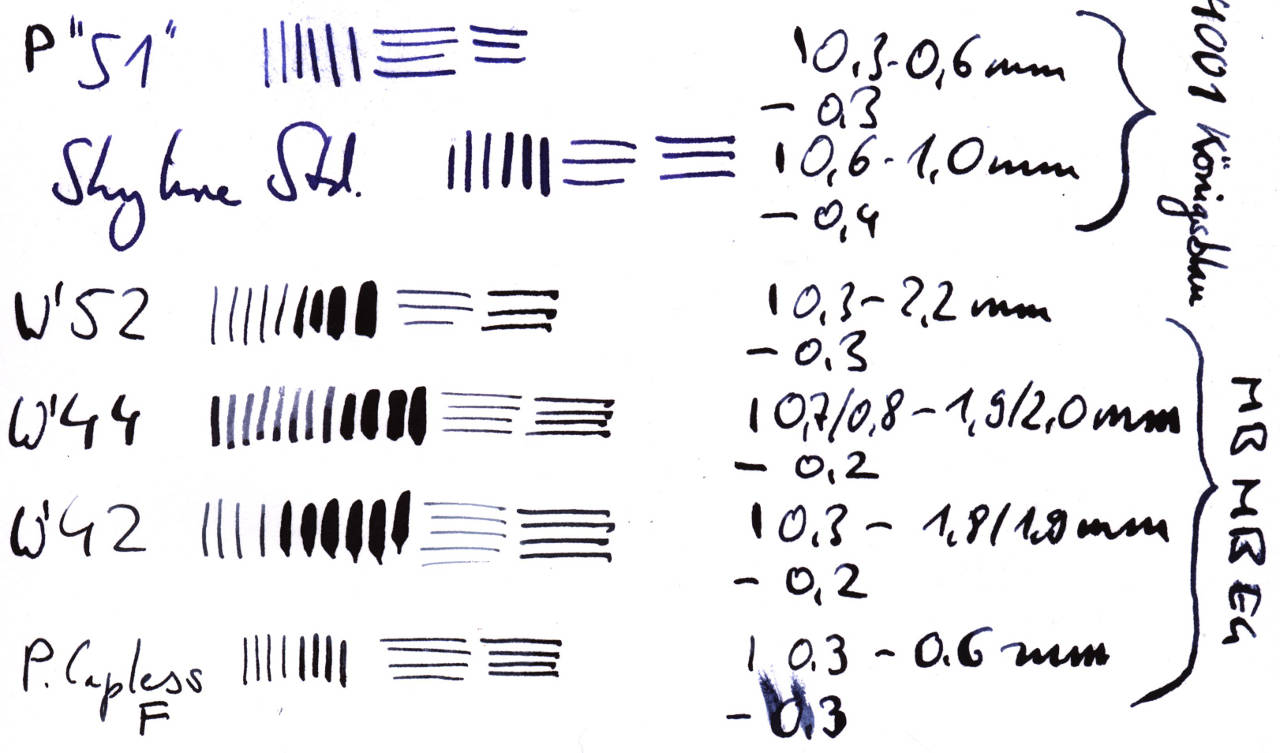 P "51" | 0,3-0,6 mm
- 0,3
Skyline Std. | 0,6-1,0 mm
- 0,4
4001 Königsblau
W'52 | 0,3-2,2 mm
- 0,3
W'44 | 0,7/0,8-1,9/2,0 mm
- 0,2
W'42 | 0,3 - 1,8/1,9 mm
- 0,2
P. Capless F | 0.3 - 0.6 mm
- 0,3